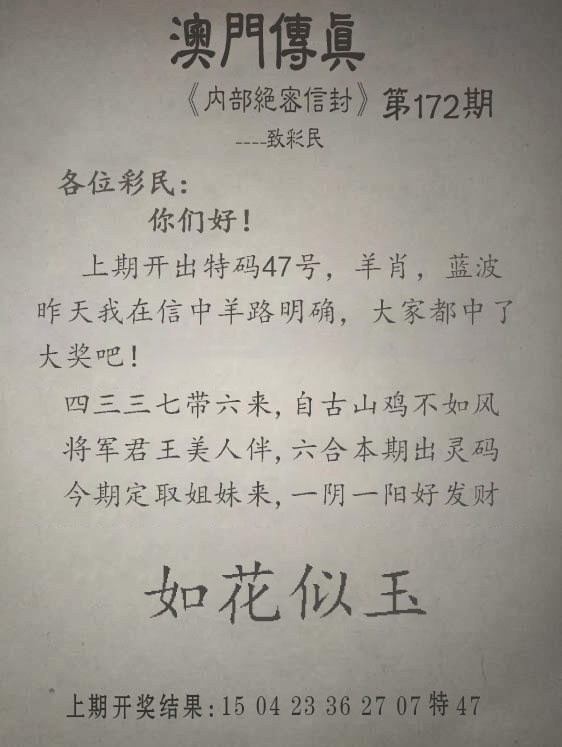 澳門傳眞
《内部絕密信封》第172期
----致彩民
各位彩民：
你们好！
上期开出特码47号，羊肖，蓝波
昨天我在信中羊路明确，大家都中了
大奖吧！
四三三七带六来,自古山鸡不如风
将军君王美人伴,六合本期出灵码
今期定取姐妹来,一阴一阳好发财
如花似玉
上期开奖结果:15 04 23 36 27 07特47